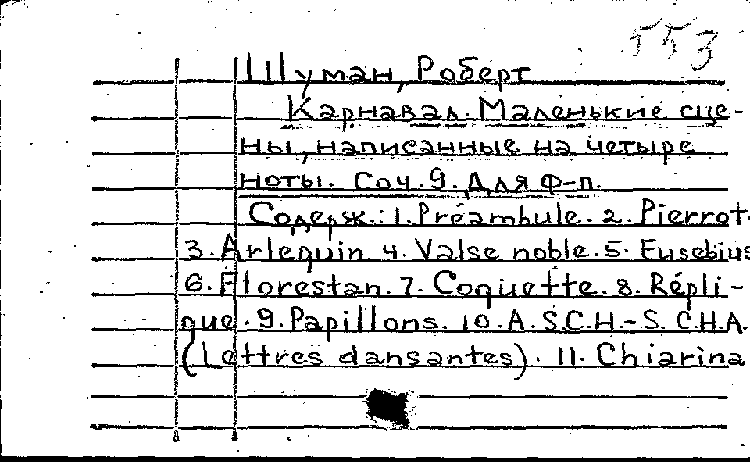 553
Шуман, Роберт
Карнавал. Маленькие сце-
ны, написанные на четыре
ноты. Соч. 9. Для ф-п.
Содерж.: 1. Préambule. 2. Pierrot.
3. Arlequin 4. Valse noble. 5. Eusebius
6. Florestan. 7. Coquette. 8. Répli-
que. 9. Papillons. 10. A.S.C.H.-S.C.H.A.
(Lettres dansantes). 11. Chiarina